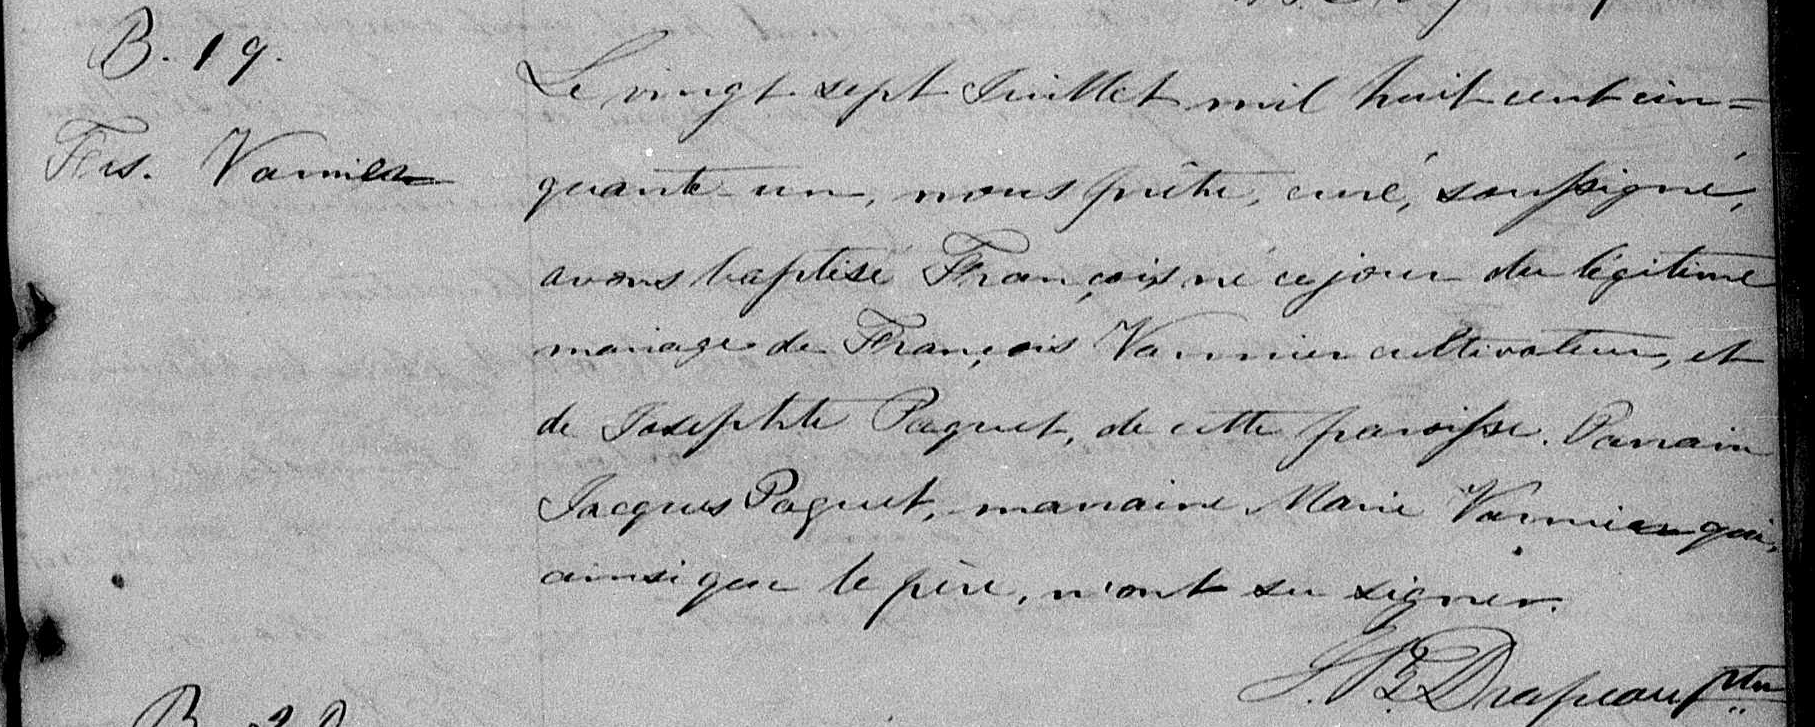 B. 19.
Le vingt-sept Juillet mil huit cent cin=
Frs. Vannier
quante-un, nous prêtre, curé, soussigné,
avons baptisé François né ce jour du légitime
mariage de François Vannier cultivateur, et
de Josephte Paquet, de cette paroisse. Parrain
Jacques Paquet, marraine Marie Vannier qui,
ainsi que le père, n'ont su signer.
J. B. Drapeau Ptre
B. 20